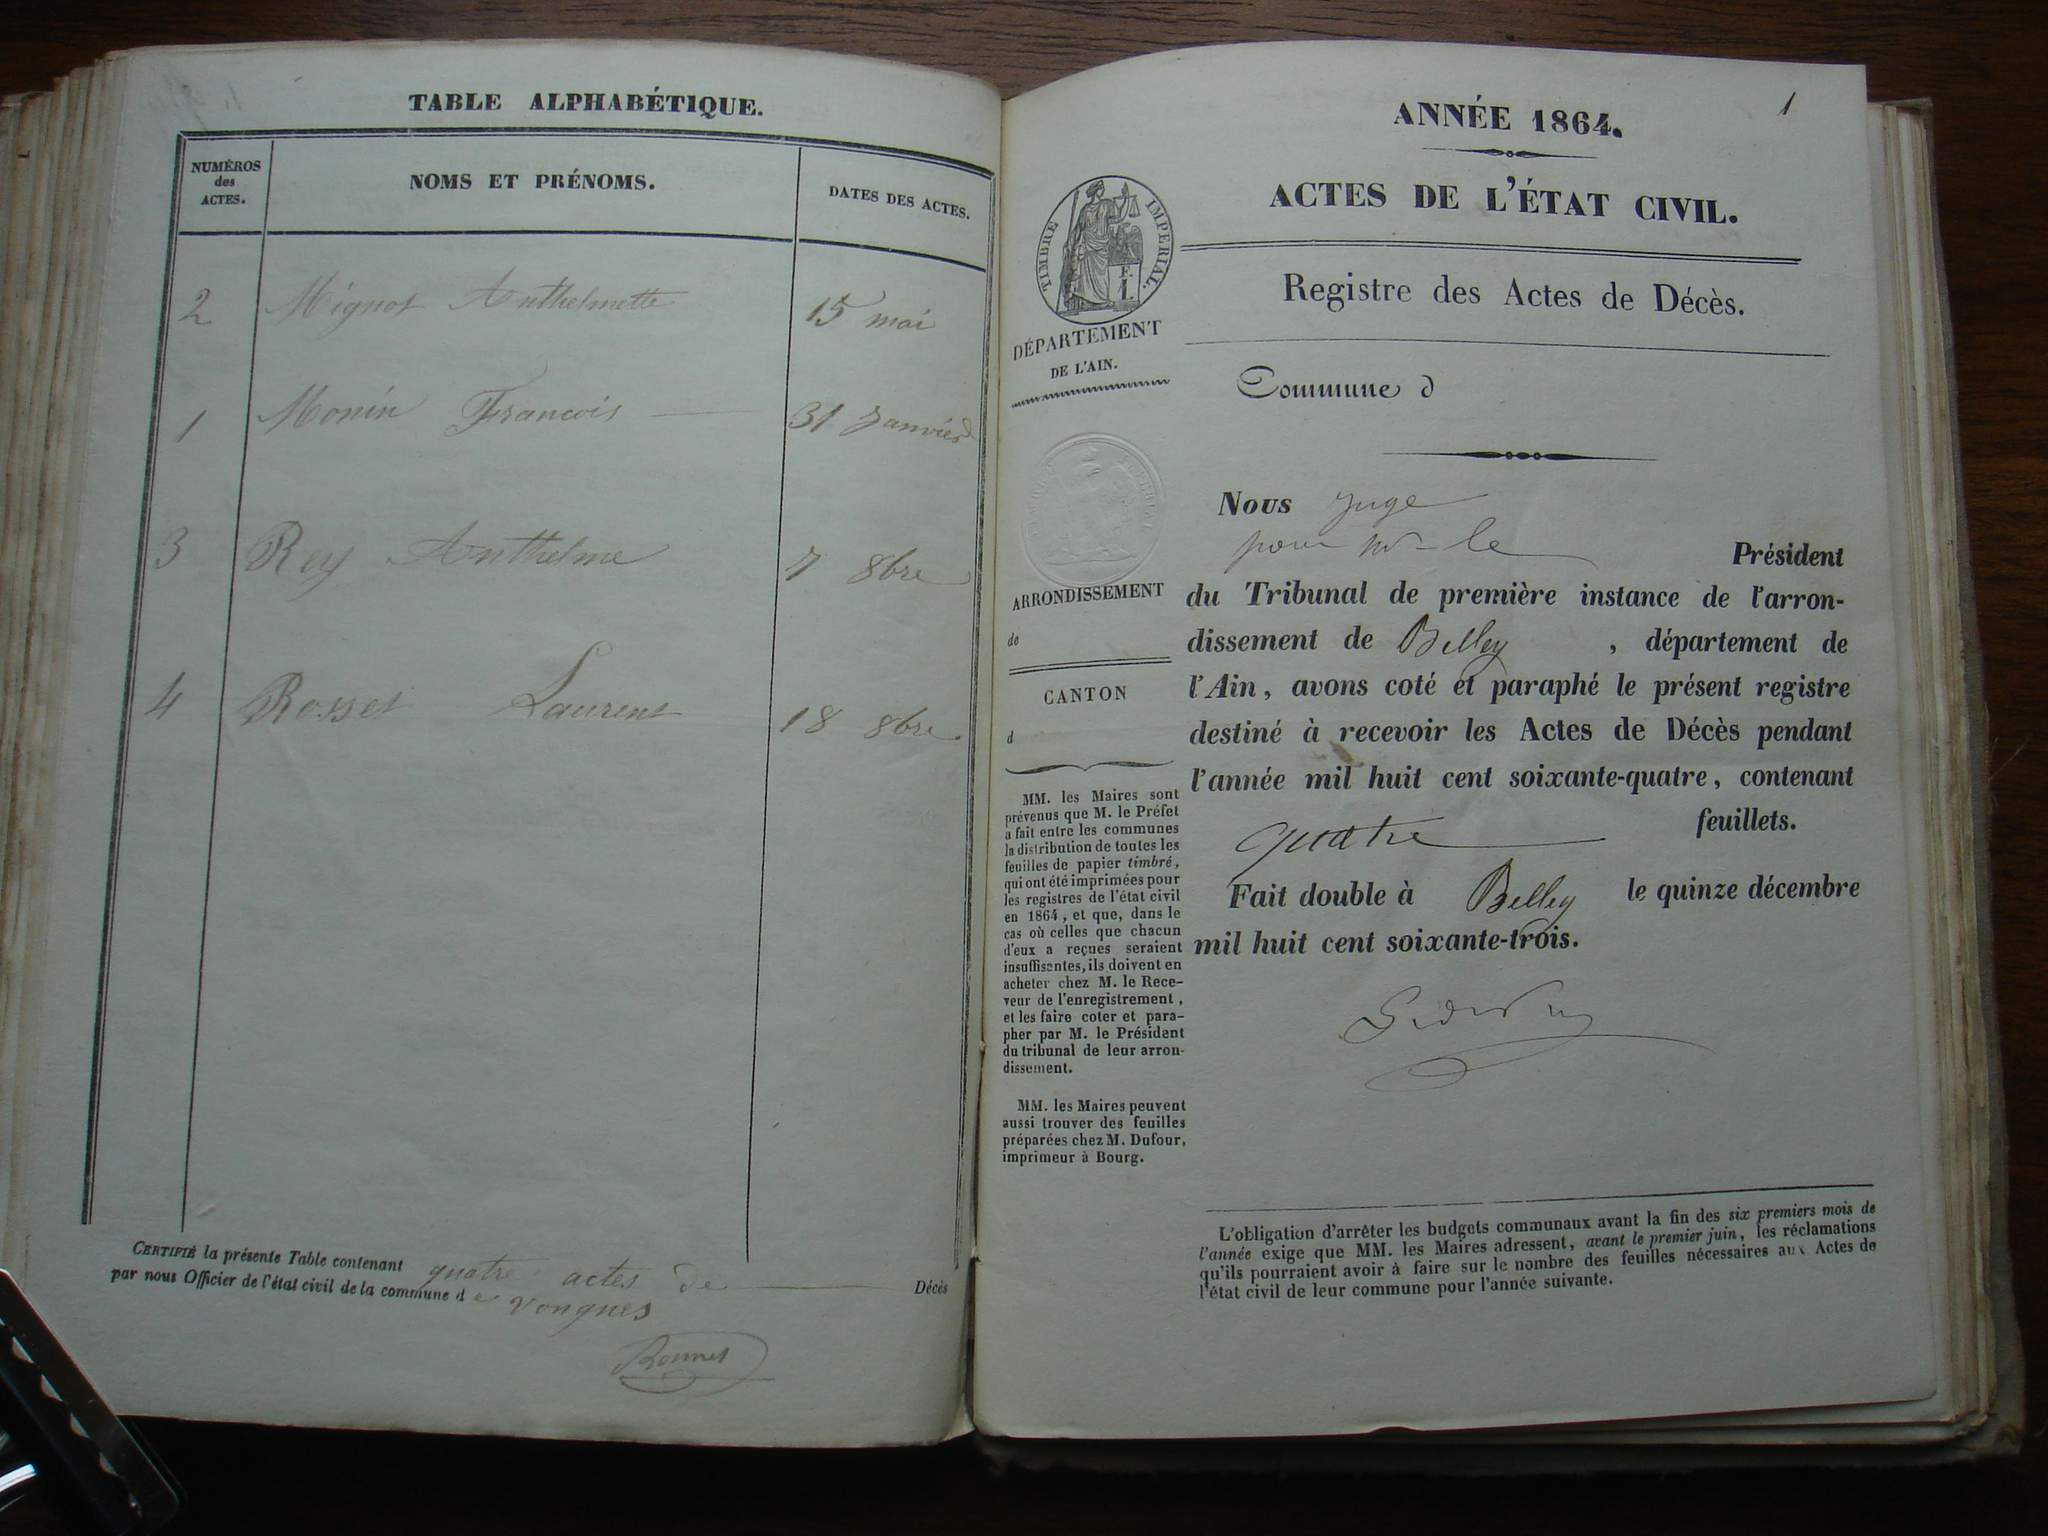 TABLE ALPHABÉTIQUE.
NUMÉROS
des
ACTES.
NOMS ET PRÉNOMS.
DATES DES ACTES.
2 Mignot Anthelmette 15 mai
1 Monin Francois 31 Janvier
3 Rey Anthelme 7 8bre
4 Rosset Laurent 18 8bre
CERTIFIÉ la présente Table contenant quatre actes de Décès
par nous Officier de l'état civil de la commune de Vongnes
Bonnet
1
ANNÉE 1864.
ACTES DE L'ÉTAT CIVIL.
TIMBRE IMPERIAL.
F.
I.
DÉPARTEMENT
DE L'AIN.
Registre des Actes de Décès.
Commune d
ARRONDISSEMENT
de
CANTON
d
MM. les Maires sont
prévenus que M. le Préfet
a fait entre les communes
la distribution de toutes les
feuilles de papier timbré,
qui ont été imprimées pour
les registres de l'état civil
en 1864, et que, dans le
cas où celles que chacun
d'eux a reçues seraient
insuffisantes, ils doivent en
acheter chez M. le Rece-
veur de l'enregistrement,
et les faire coter et para-
pher par M. le Président
du tribunal de leur arron-
dissement.
MM. les Maires peuvent
aussi trouver des feuilles
préparées chez M. Dufour,
imprimeur à Bourg.
Nous Juge
pour Mr le Président
du Tribunal de première instance de l'arron-
dissement de Belley, département de
l'Ain, avons coté et paraphé le présent registre
destiné à recevoir les Actes de Décès pendant
l'année mil huit cent soixante-quatre, contenant
quatre feuillets.
Fait double à Belley le quinze décembre
mil huit cent soixante-trois.
L'obligation d'arrêter les budgets communaux avant la fin des six premiers mois de
l'année exige que MM. les Maires adressent, avant le premier juin, les réclamations
qu'ils pourraient avoir à faire sur le nombre des feuilles nécessaires aux Actes de
l'état civil de leur commune pour l'année suivante.